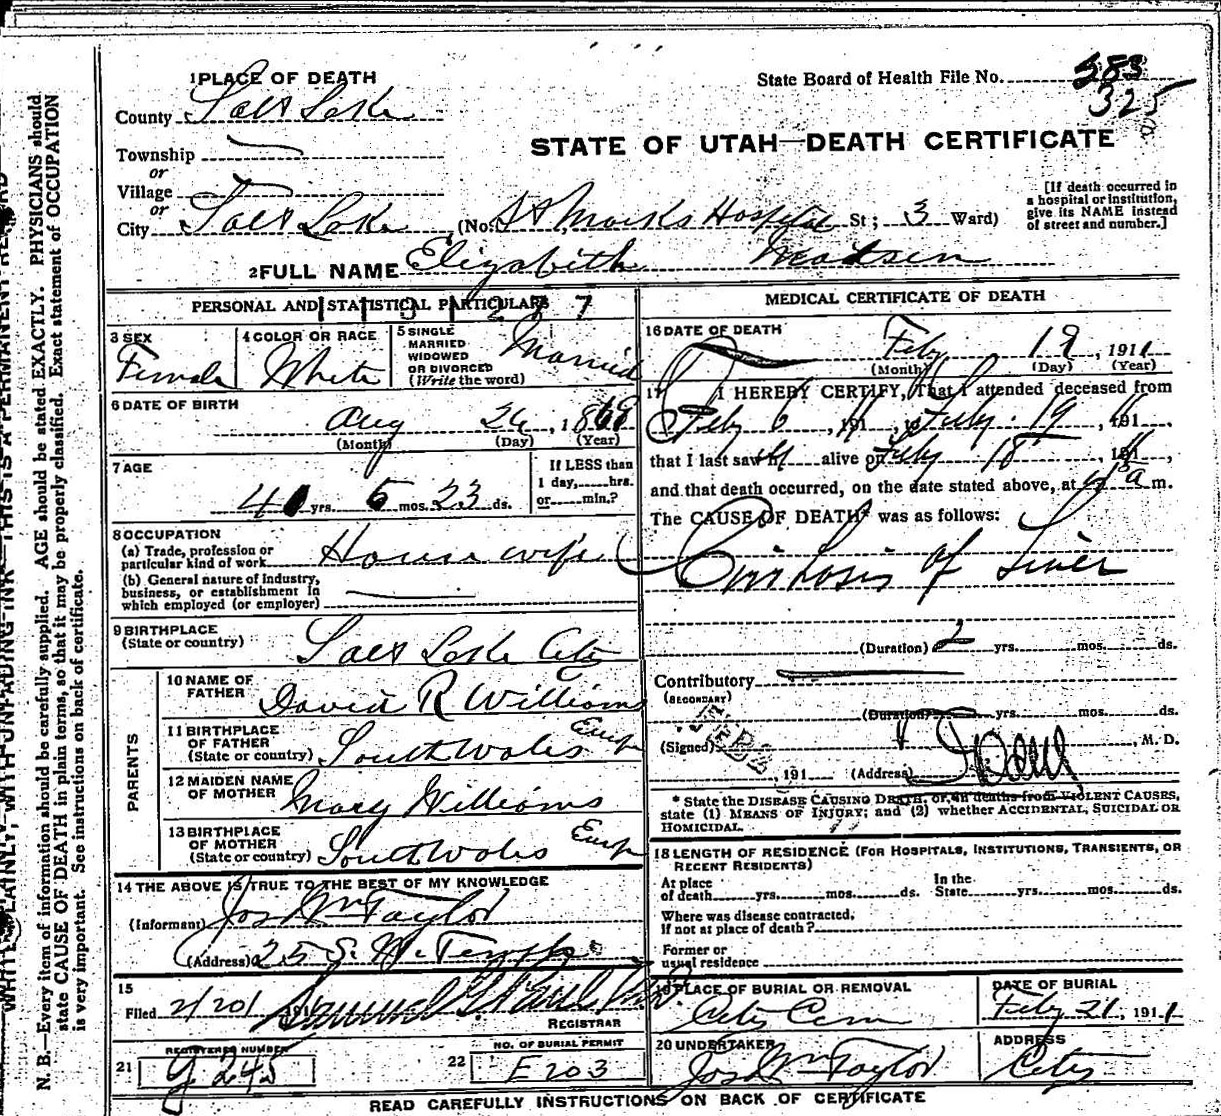 1 PLACE OF DEATH
State Board of Health File No. 583
325
County Salt Lake
STATE OF UTAH—DEATH CERTIFICATE
Township
or
Village
or
City Salt Lake (No. St Marks Hospital St; 3 Ward)
[If death occurred in a hospital or institution, give its NAME instead of street and number.]
2 FULL NAME Elizabeth Madsen
PERSONAL AND STATISTICAL PARTICULARS
3 SEX Female
4 COLOR OR RACE White
5 SINGLE MARRIED WIDOWED OR DIVORCED (Write the word) Married
6 DATE OF BIRTH
Aug 26, 1869
(Month) (Day) (Year)
7 AGE
If LESS than
1 day,......hrs.
or......min.?
41 yrs. 5 mos. 23 ds.
8 OCCUPATION
(a) Trade, profession or
particular kind of work House wife
(b) General nature of industry,
business, or establishment in
which employed (or employer)
9 BIRTHPLACE
(State or country) Salt Lake City
PARENTS
10 NAME OF
FATHER David R Williams
11 BIRTHPLACE
OF FATHER
(State or country) South Wales Europ
12 MAIDEN NAME
OF MOTHER Mary Williams
13 BIRTHPLACE
OF MOTHER
(State or country) South Wales Europ
14 THE ABOVE IS TRUE TO THE BEST OF MY KNOWLEDGE
(Informant) Jos Wm Taylor
(Address) 25 S. W. Temple
15
Filed 2/20/ 191
REGISTRAR
REGISTERED NUMBER
NO. OF BURIAL PERMIT
21 G 245
22 E 203
MEDICAL CERTIFICATE OF DEATH
16 DATE OF DEATH
Feb 19, 1911
(Month) (Day) (Year)
17 I HEREBY CERTIFY, That I attended deceased from
Feby 6 11, to Feby. 19 11,
that I last saw h alive on Feby 18, 1911,
and that death occurred, on the date stated above, at a m.
The CAUSE OF DEATH* was as follows:
Cirrhosis of Liver
(Duration) 2 yrs. mos. ds.
Contributory
(SECONDARY)
(Duration) yrs. mos. ds.
(Signed) M. D.
, 191 (Address)
* State the DISEASE CAUSING DEATH, or, in deaths from VIOLENT CAUSES,
state (1) MEANS OF INJURY; and (2) whether ACCIDENTAL, SUICIDAL OR
HOMICIDAL.
18 LENGTH OF RESIDENCE (FOR HOSPITALS, INSTITUTIONS, TRANSIENTS, OR
RECENT RESIDENTS)
At place
of death yrs. mos. ds. In the State yrs. mos. ds.
Where was disease contracted,
if not at place of death?
Former or
usual residence
19 PLACE OF BURIAL OR REMOVAL
City Cem
DATE OF BURIAL
Feby 21, 1911
20 UNDERTAKER
Jos Wm Taylor
ADDRESS
City
READ CAREFULLY INSTRUCTIONS ON BACK OF CERTIFICATE
WRITE PLAINLY, WITH UNFADING INK—THIS IS A PERMANENT RECORD
N. B.—Every item of information should be carefully supplied. AGE should be stated EXACTLY. PHYSICIANS should
state CAUSE OF DEATH in plain terms, so that it may be properly classified. Exact statement of OCCUPATION
is very important. See instructions on back of certificate.